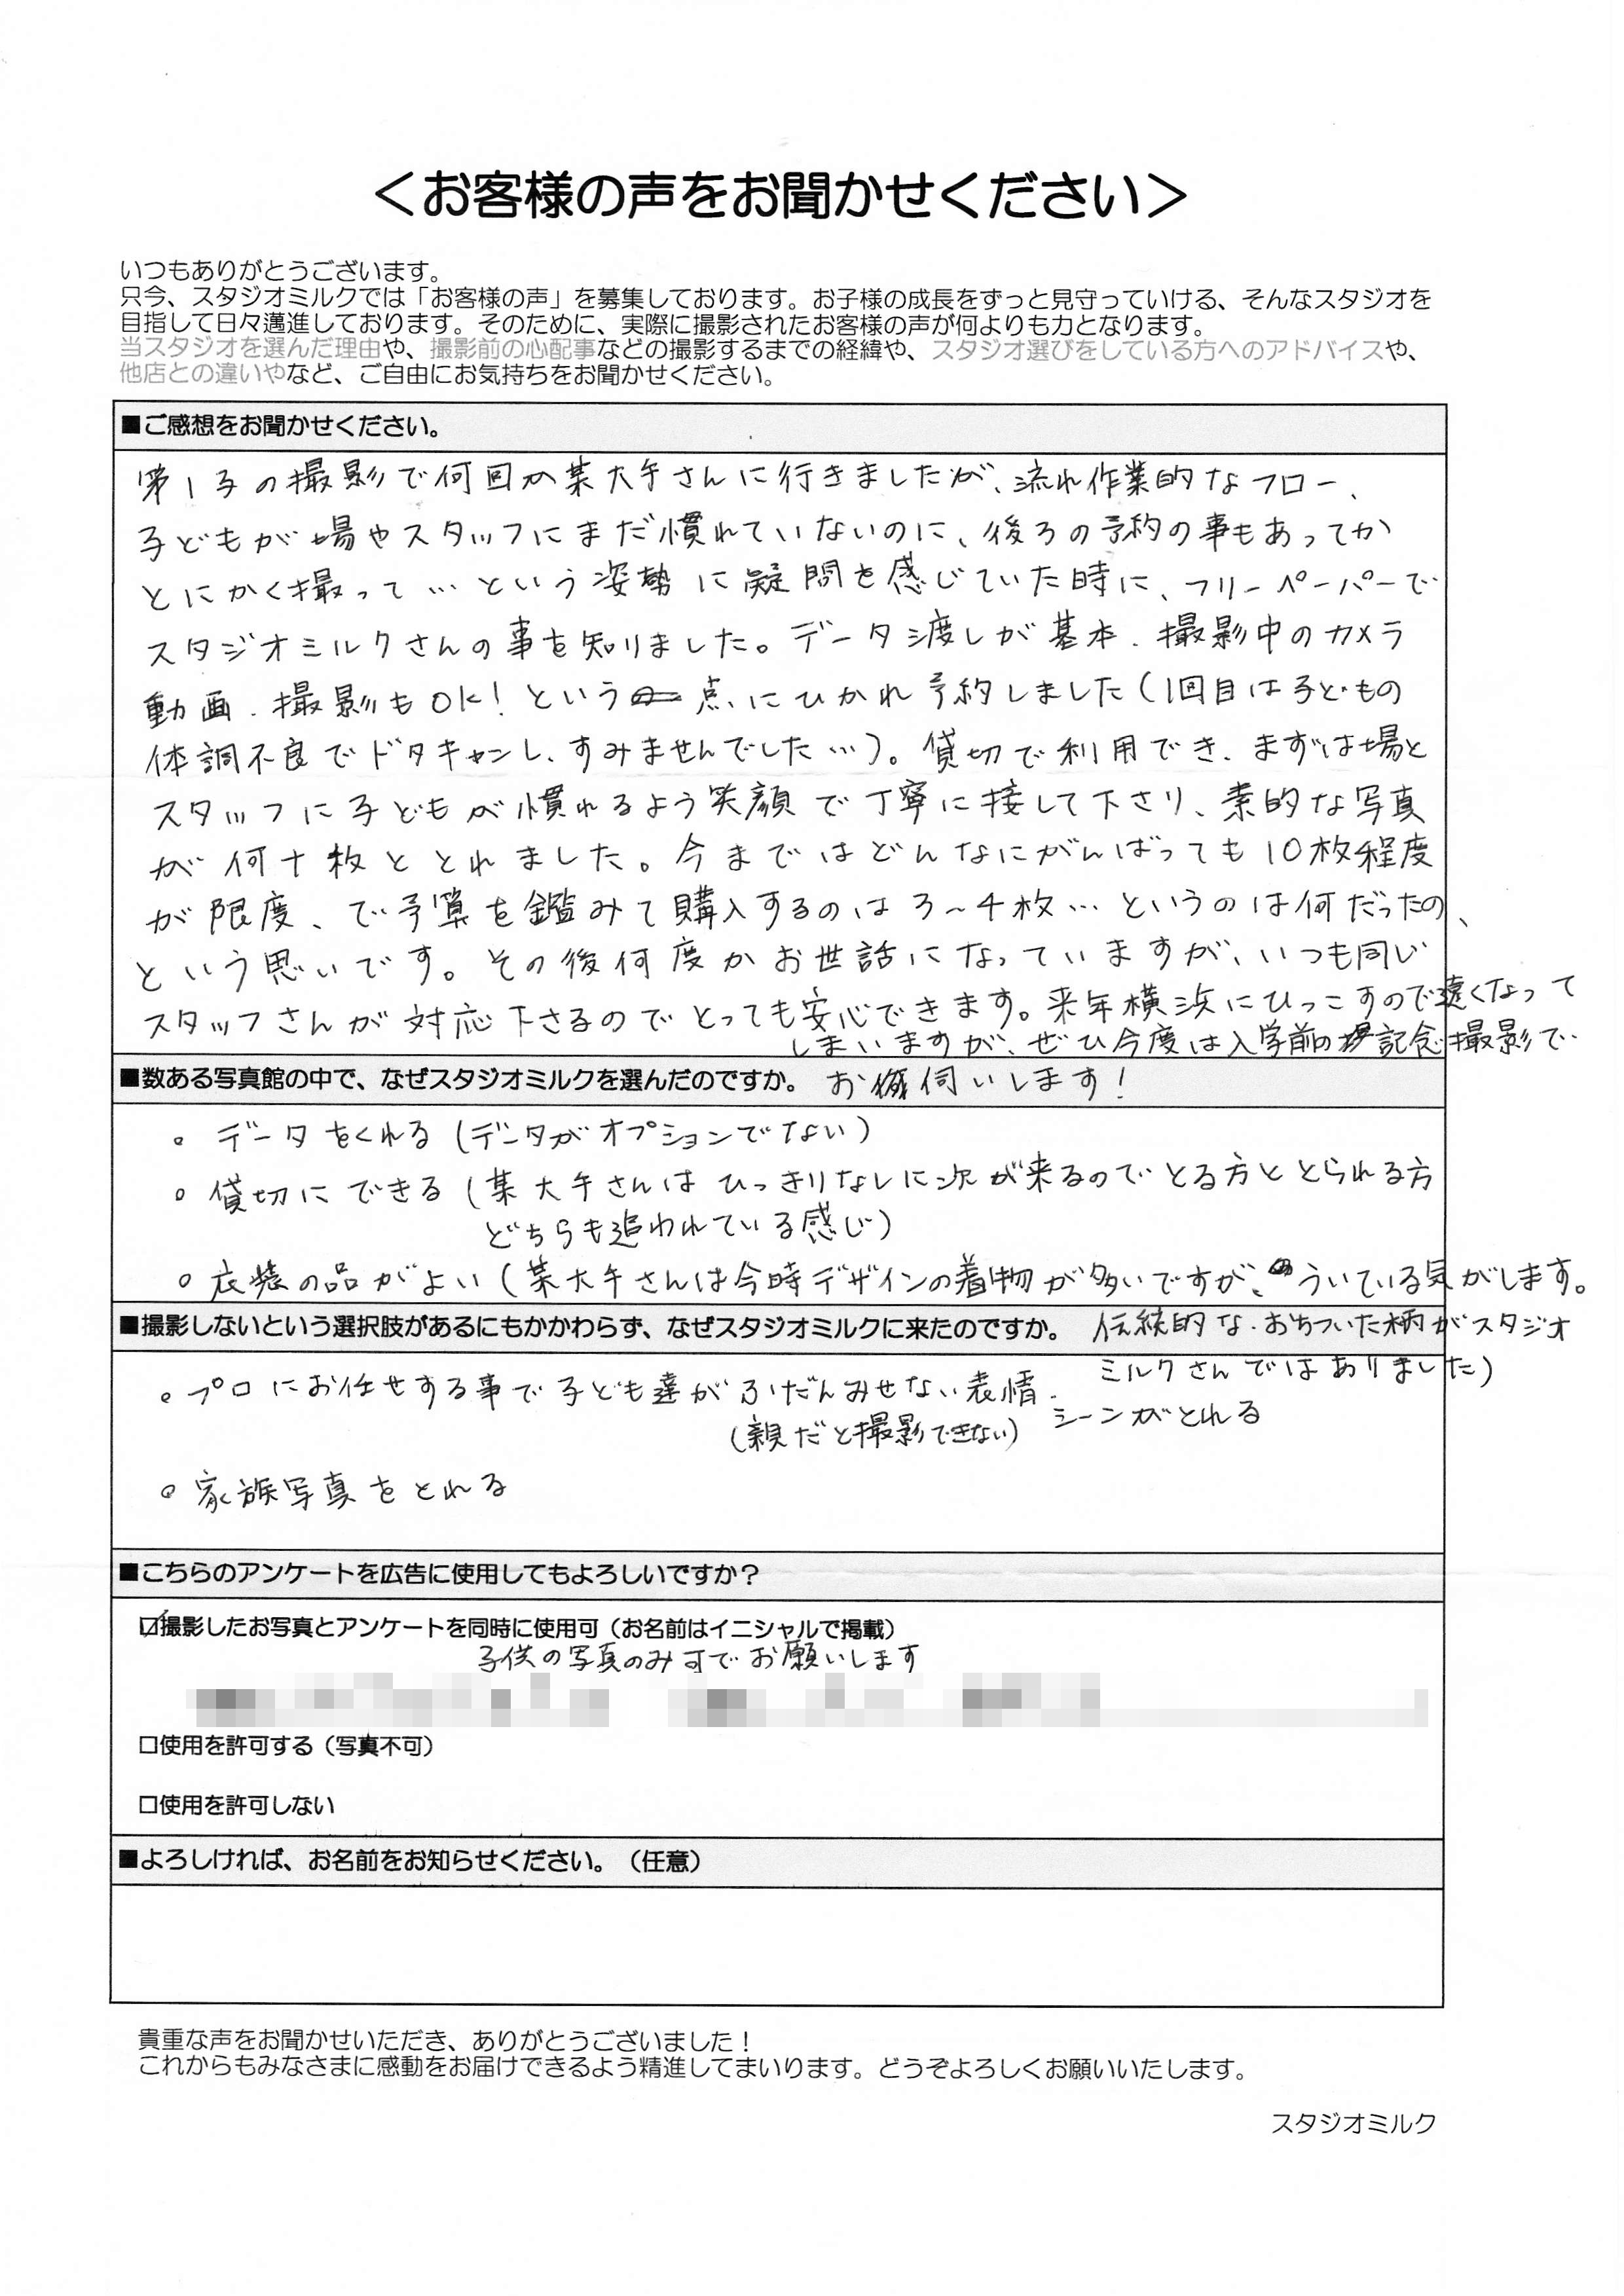 ＜お客様の声をお聞かせください＞
いつもありがとうございます。
只今、スタジオミルクでは「お客様の声」を募集しております。お子様の成長をずっと見守っていける、そんなスタジオを
目指して日々邁進しております。そのために、実際に撮影されたお客様の声が何よりも力となります。
当スタジオを選んだ理由や、撮影前の心配事などの撮影するまでの経緯や、スタジオ選びをしている方へのアドバイスや、
他店との違いやなど、ご自由にお気持ちをお聞かせください。
■ご感想をお聞かせください。
第1子の撮影で何回か某大手さんに行きましたが、流れ作業的なフロー、
子どもが場やスタッフにまだ慣れていないのに、後ろの予約の事もあってか
とにかく撮って…という姿勢に疑問を感じていた時に、フリーペーパーで
スタジオミルクさんの事を知りました。データ渡しが基本、撮影中のカメラ
動画、撮影もOK!という点にひかれ予約しました(1回目は子どもの
体調不良でドタキャンし、すみませんでした…)。貸切で利用でき、まずは場と
スタッフに子どもが慣れるよう笑顔で丁寧に接して下さり、素的な写真
が何十枚ととれました。今まではどんなにがんばっても10枚程度
が限度、で予算を鑑みて購入するのは3~4枚…というのは何だったの、
という思いです。その後何度かお世話になっていますが、いつも同じ
スタッフさんが対応下さるのでとっても安心できます。来年横浜にひっこすので遠くなって
しまいますが、ぜひ今度は入学前の記念撮影で
お伺いします!
■数ある写真館の中で、なぜスタジオミルクを選んだのですか。
。データをくれる(データがオプションでない)
。貸切にできる(某大手さんはひっきりなしに次が来るのでとる方ととられる方
どちらも追われている感じ)
。衣装の品がよい(某大手さんは今時デザインの着物が多いですが、ういている気がします。
伝統的な、おちついた柄がスタジオ
ミルクさんではありました)
■撮影しないという選択肢があるにもかかわらず、なぜスタジオミルクに来たのですか。
。プロにお任せする事で子ども達がふだんみせない表情、
シーンがとれる
(親だと撮影できない)
。家族写真をとれる
■こちらのアンケートを広告に使用してもよろしいですか？
☑撮影したお写真とアンケートを同時に使用可（お名前はイニシャルで掲載）
子供の写真のみ可でお願いします
□使用を許可する（写真不可）
□使用を許可しない
■よろしければ、お名前をお知らせください。（任意）
貴重な声をお聞かせいただき、ありがとうございました！
これからもみなさまに感動をお届けできるよう精進してまいります。どうぞよろしくお願いいたします。
スタジオミルク